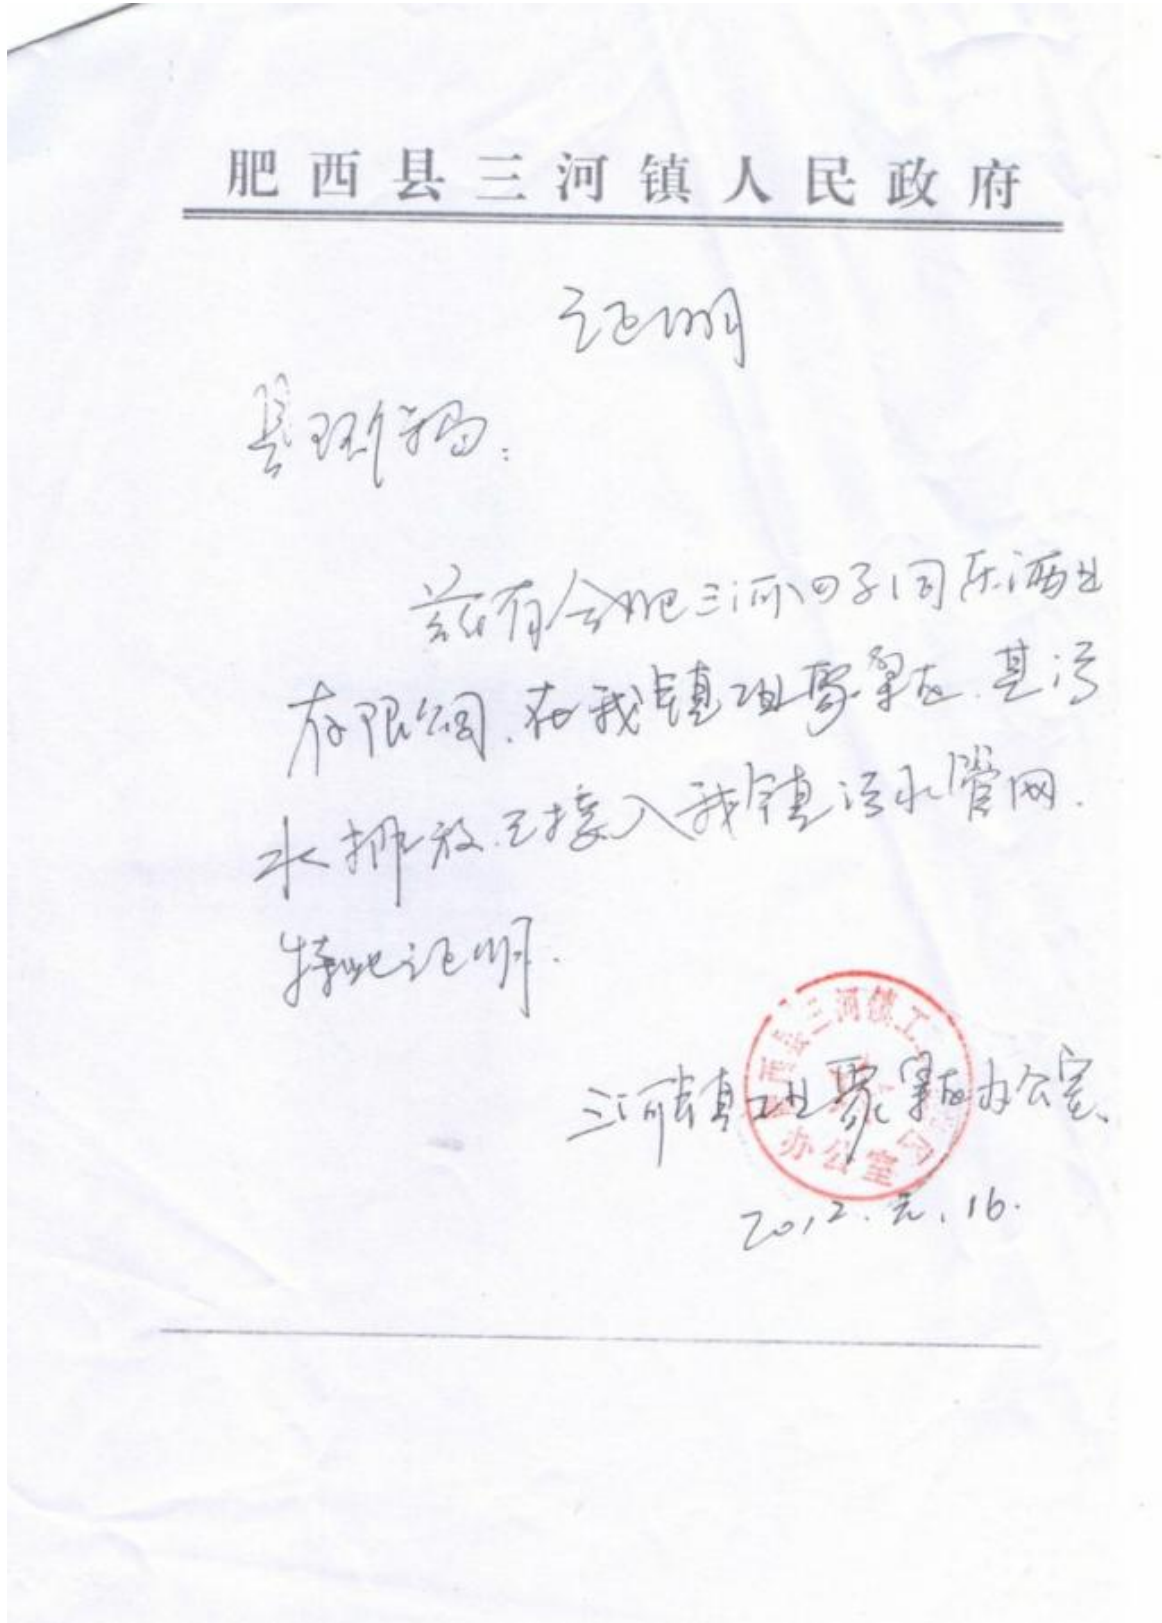 肥西县三河镇人民政府
证明
县环保局:
兹有合肥三河四子同乐酒业
有限公司,在我镇工业聚集区,其污
水排放已接入我镇污水管网.
特此证明.
肥西县三河镇工
办公室
三河镇工业聚集区办公室
2012.元.16.